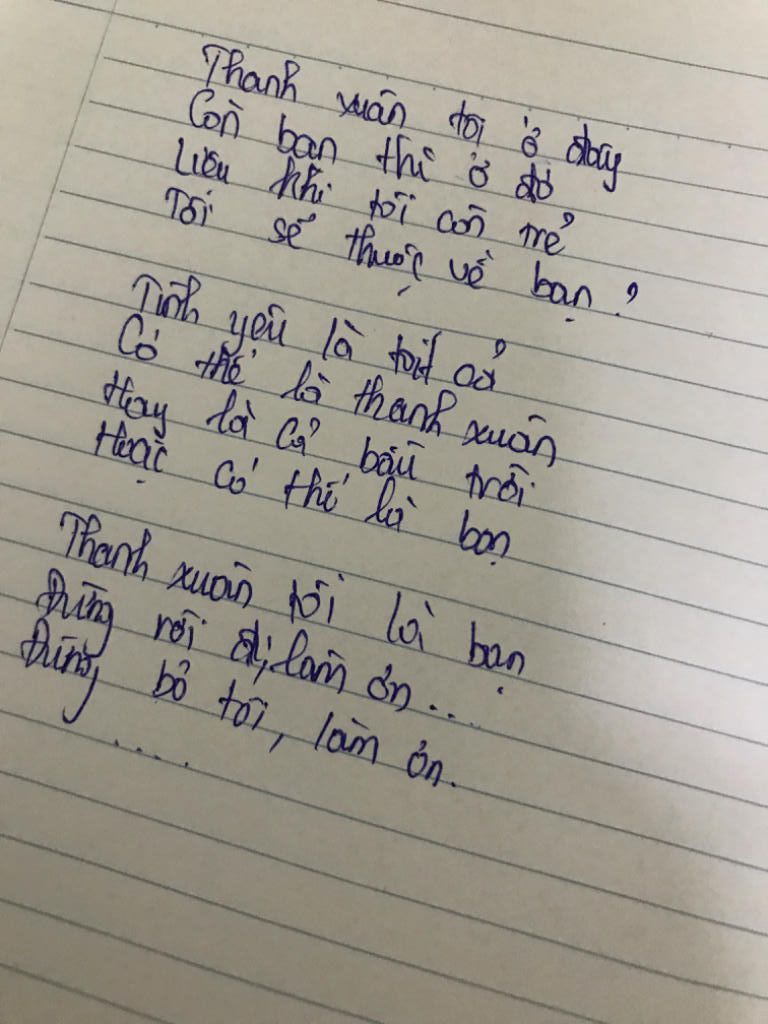 Thanh xuân tôi ở đây
Còn bạn thì ở đó
Liệu khi tôi còn trẻ
Tôi sẽ thuộc về bạn?
Tình yêu là tất cả
Có thể là thanh xuân
Hay là cả bầu trời
Hoặc có thể là bạn
Thanh xuân tôi là bạn
Đừng rời đi, làm ơn....
Đừng bỏ tôi, làm ơn.
.....